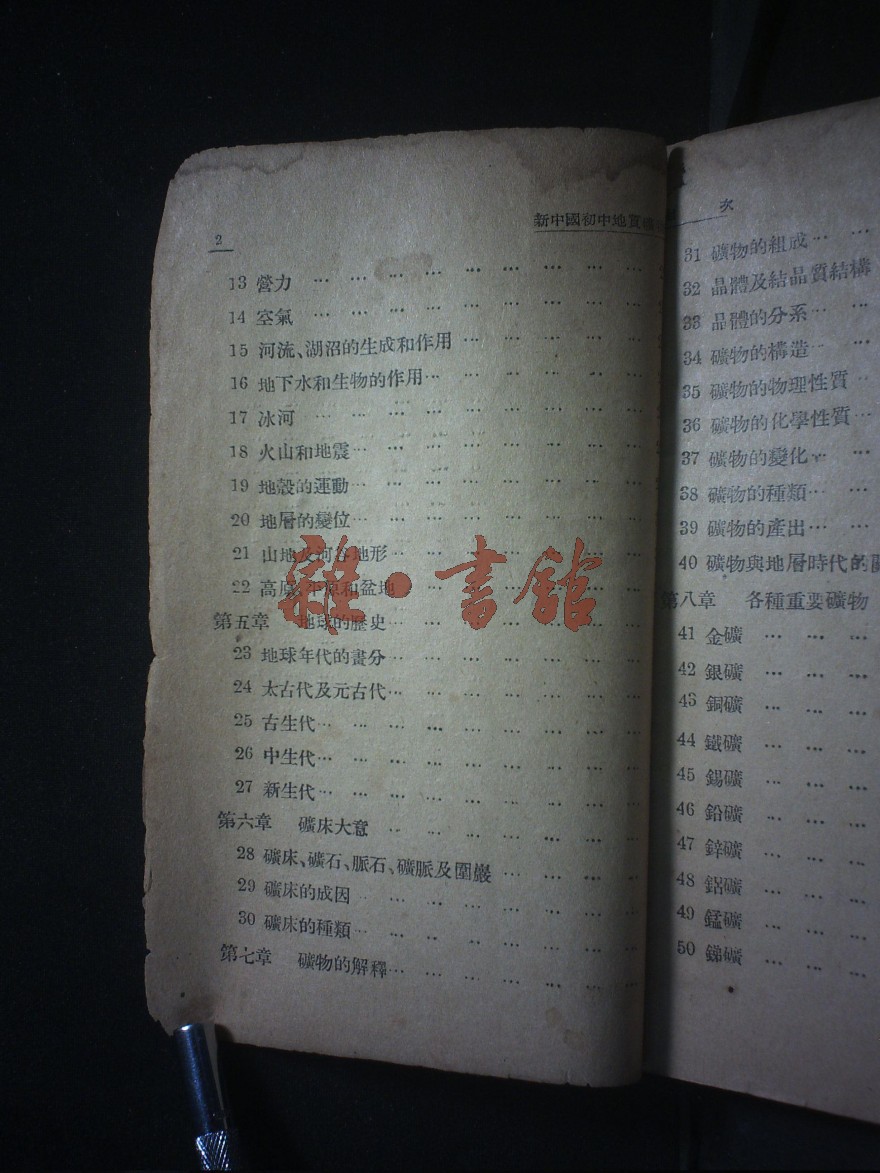 2
新中國初中地質
13 營力 … … … … … … … … … …
14 空氣 … … … … … … … … … …
15 河流、湖沼的生成和作用 … … … … … …
16 地下水和生物的作用… … … … … … …
17 冰河 … … … … … … … … … …
18 火山和地震… … … … … … … … …
19 地殼的運動… … … … … … … … …
20 地層的變位… … … … … … … … …
21 山地及河谷地形… … … … … … … …
22 高原、平原和盆地… … … … … … …
第五章 地球的歷史… … … … … … … …
23 地球年代的畫分… … … … … … … …
24 太古代及元古代… … … … … … … …
25 古生代… … … … … … … … … …
26 中生代… … … … … … … … … …
27 新生代… … … … … … … … … …
第六章 礦床大意 … … … … … … … …
28 礦床、礦石、脈石、礦脈及圍巖 … … … …
29 礦床的成因 … … … … … … … …
30 礦床的種類… … … … … … … … …
第七章 礦物的解釋… … … … … … … …
次
31 礦物的組成… …
32 晶體及結晶質結構
33 晶體的分系… …
34 礦物的構造… …
35 礦物的物理性質 …
36 礦物的化學性質…
37 礦物的變化… …
38 礦物的種類… …
39 礦物的產出… …
40 礦物與地層時代的關
第八章 各種重要礦物
41 金礦 … … …
42 銀礦 … … …
43 銅礦 … … …
44 鐵礦 … … …
45 錫礦 … … …
46 鉛礦 … … …
47 鋅礦 … … …
48 鋁礦 … … …
49 錳礦 … … …
50 銻礦 … … …
雜·書館